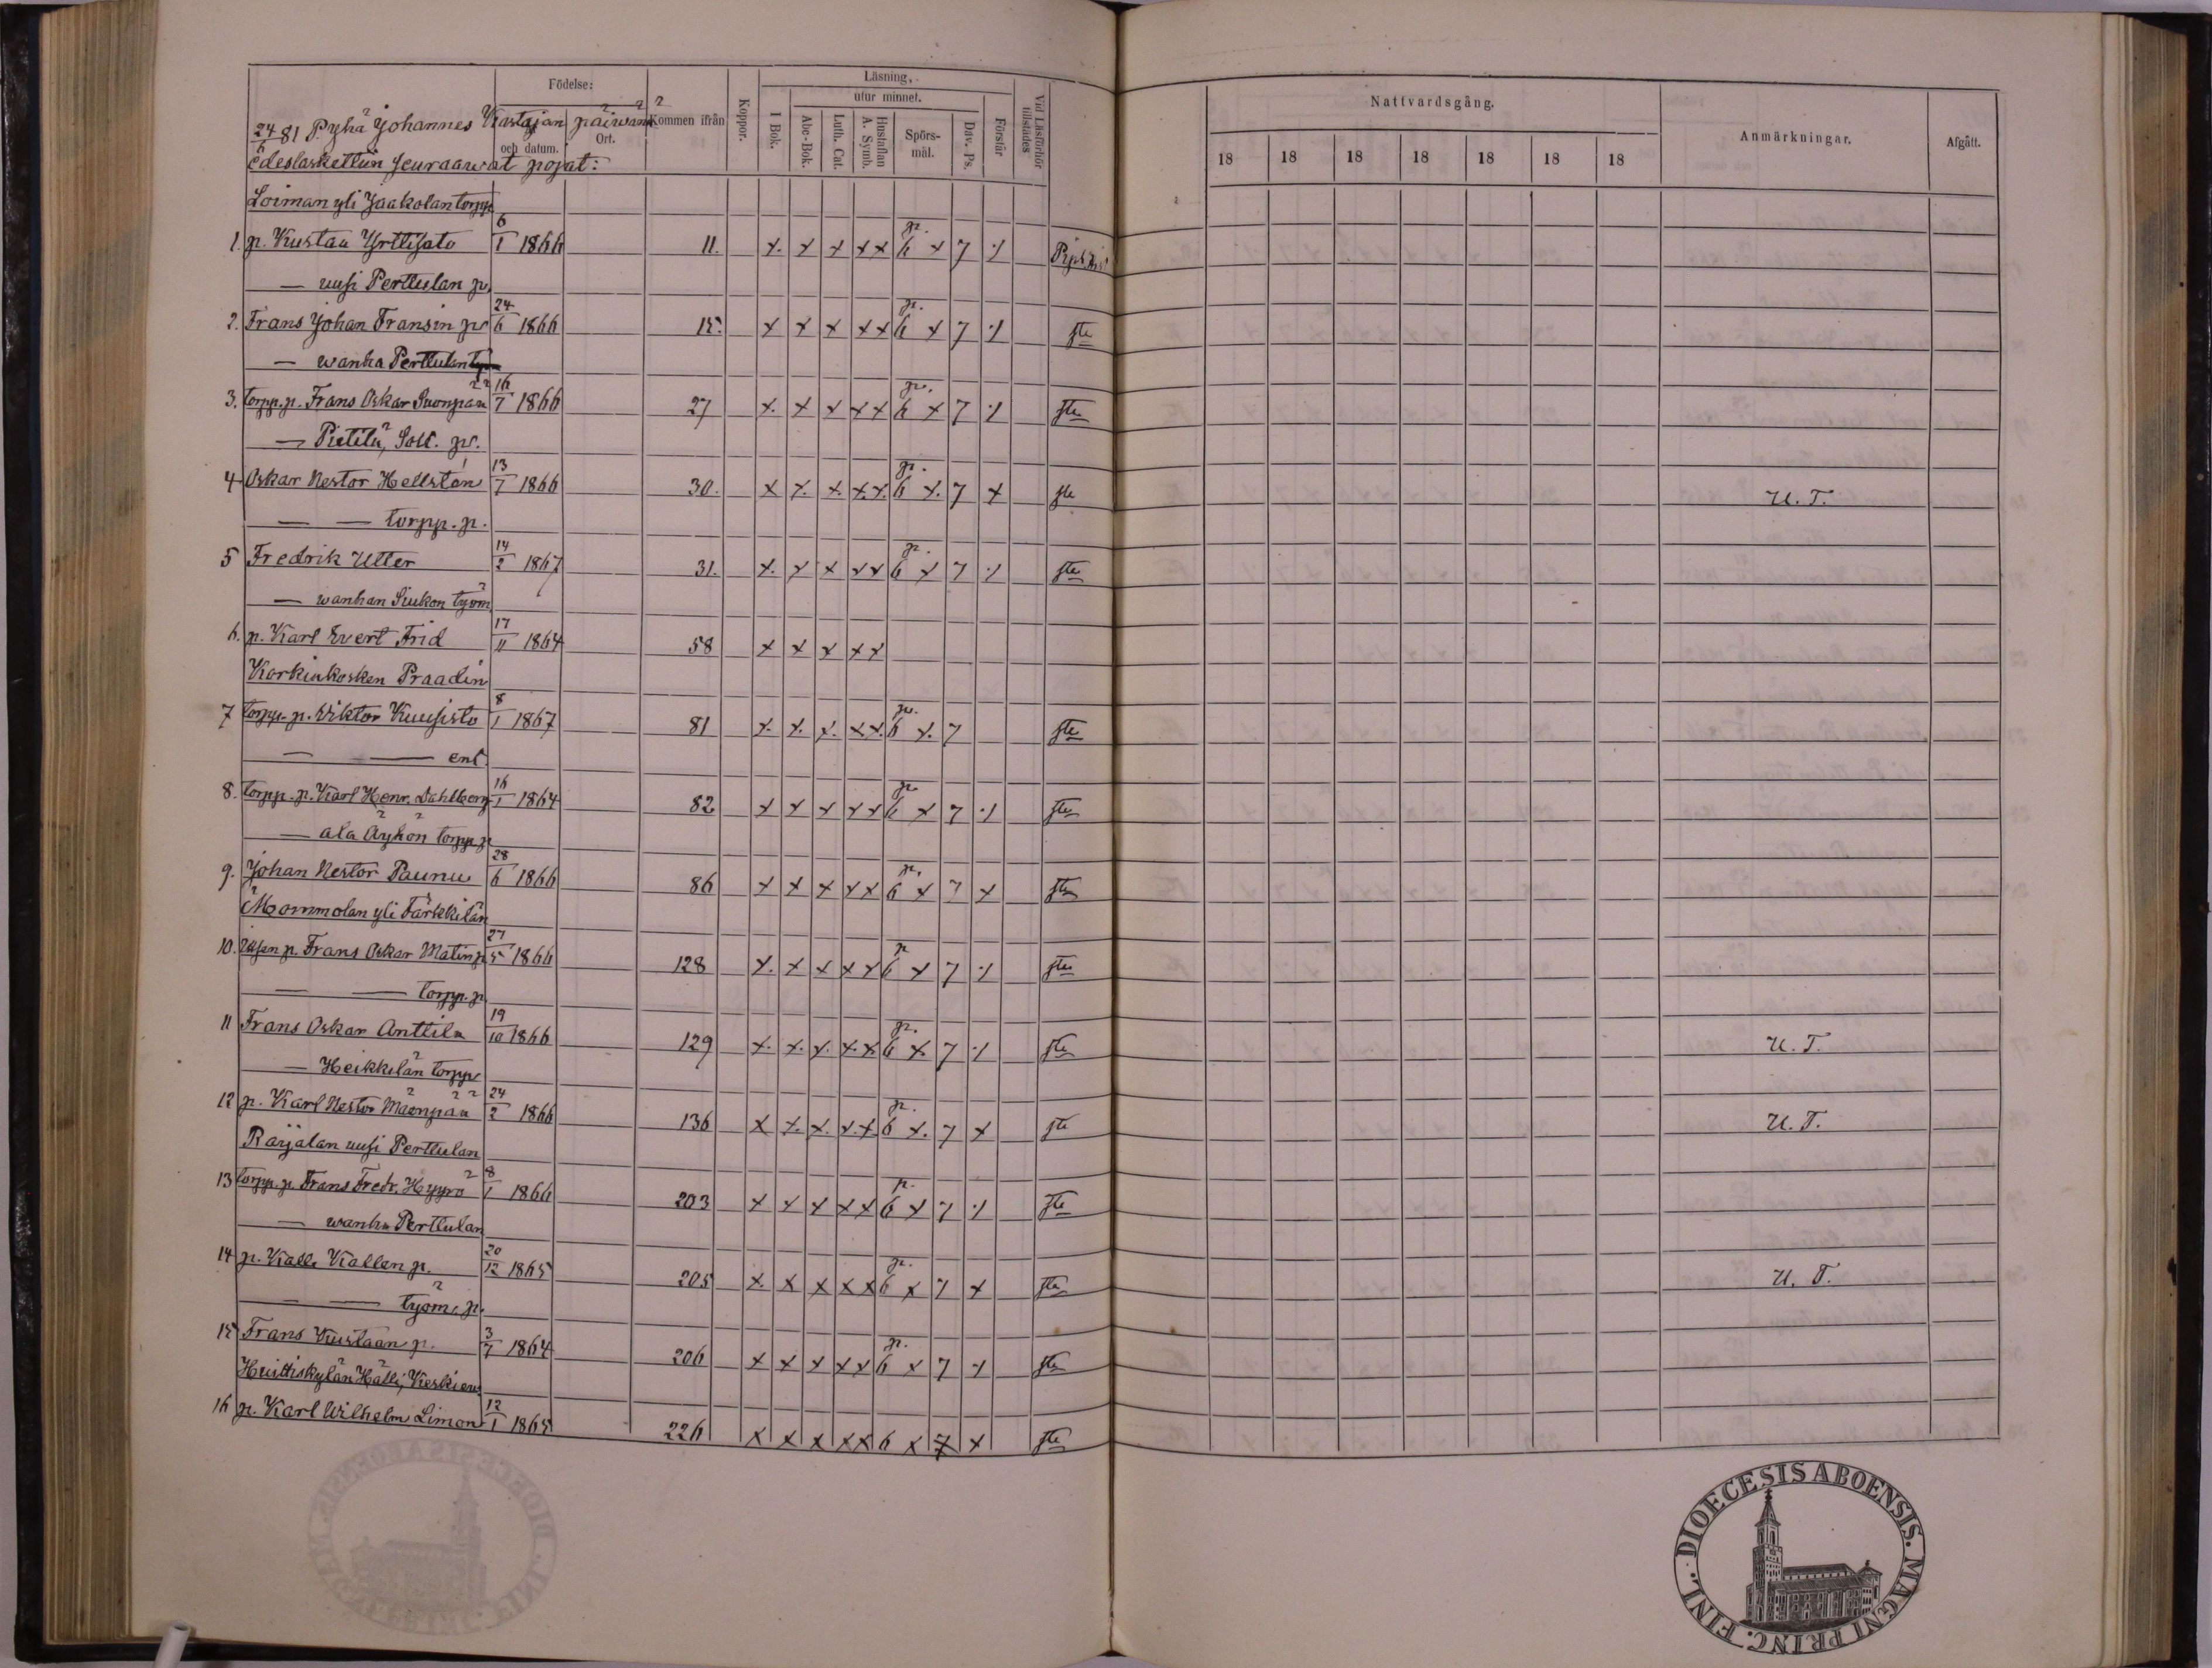 Födelse:
Kommen ifrån
Koppor.
Läsning,
utur minnet.
I Bok.
Abc-Bok.
Luth. Cat.
Hustaflan
A. Symb.
Spörs-
mål.
Dav. Ps.
Förstår
Vid Läsförhör
tillstädes
och datum.
Ort.
24/6 81 Pyhä Johannes Kastajan päiwänä
edeslaskettiin seuraawat pojat:
Loiman yli Jaakolan torpp.
1. p. Kustaa Yrttisalo 6/1 1866 11. x. x x x x p. 6 x 7 ·/.
— uusi Perttulan p.
2. Frans Johan Fransin p. 24/6 1866 15. x x x x x p. 6 x 7 ·/. ste
— wanha Perttulan
3. torpp. p. Frans Oskar Suonpää 16/7 1866 27 x. x x x x p. 6 x 7 ·/. ste
— Pietilä, Sott. p.
4 Oskar Nestor Hellstén 13/7 1866 30. x x. x. x. x. p. 6 x. 7 x ste U. T.
— — torpp. p.
5 Fredrik Utter 14/2 1867 31. x. x x x x p. 6 x 7 ·/. ste
— wanhan Siukon työm.
6. p. Karl Evert Frid 17/11 1864 58 x x x x x
Korkiakosken Praadin
7 torpp. p. Wiktor Kuusisto 8/1 1867 81 x. x. x. x x. p. 6 x. 7 ste
— — ent.
8. torpp. p. Karl Henr. Dahlberg 16/1 1864 82 x x x x x p. 6 x 7 ·/. ste
— ala Äyhön torpp. p
9. Johan Nestor Paunu 28/6 1866 86 x x x x x p. 6 x 7 x ste
Mommolan yli Tärkkilän
10. p. Frans Oskar Matin p. 27/5 1866 128 x. x x x x p 6 x 7 ·/. ste
— — torpp. p.
11 Frans Oskar Anttila 19/10 1866 129 x. x. x. x. x p. 6 x 7 ·/. ste U. T.
— Heikkilän torpp
12 p. Karl Nestor Mäenpää 24/2 1866 136 x x. x. x. x p. 6 x. 7 x ste U. T.
Rayälan uusi Perttulan
13 torpp. p. Frans Fredr. Hyyrö 8/1 1866 203 x x x x x p. 6 x 7 ·/. ste
— wanha Perttulan
14 p. Kalle Kallan p. 20/12 1865 205 x. x x x x p. 6 x 7 x ste U. T.
— — työm. p.
15 Frans Kustaan p. 3/7 1864 206 x x x x x p. 6 x 7 x ste
Huittiskylän Hälli,
16 p. Karl Wilhelm Limon 12/1 1865 226 x x x x x 6 x 7 x ste
Nattvardsgång.
18 18 18 18 18 18 18
Anmärkningar.
Afgått.
DIOECESIS ABOENSIS. MAGNI PRINC. FINL.